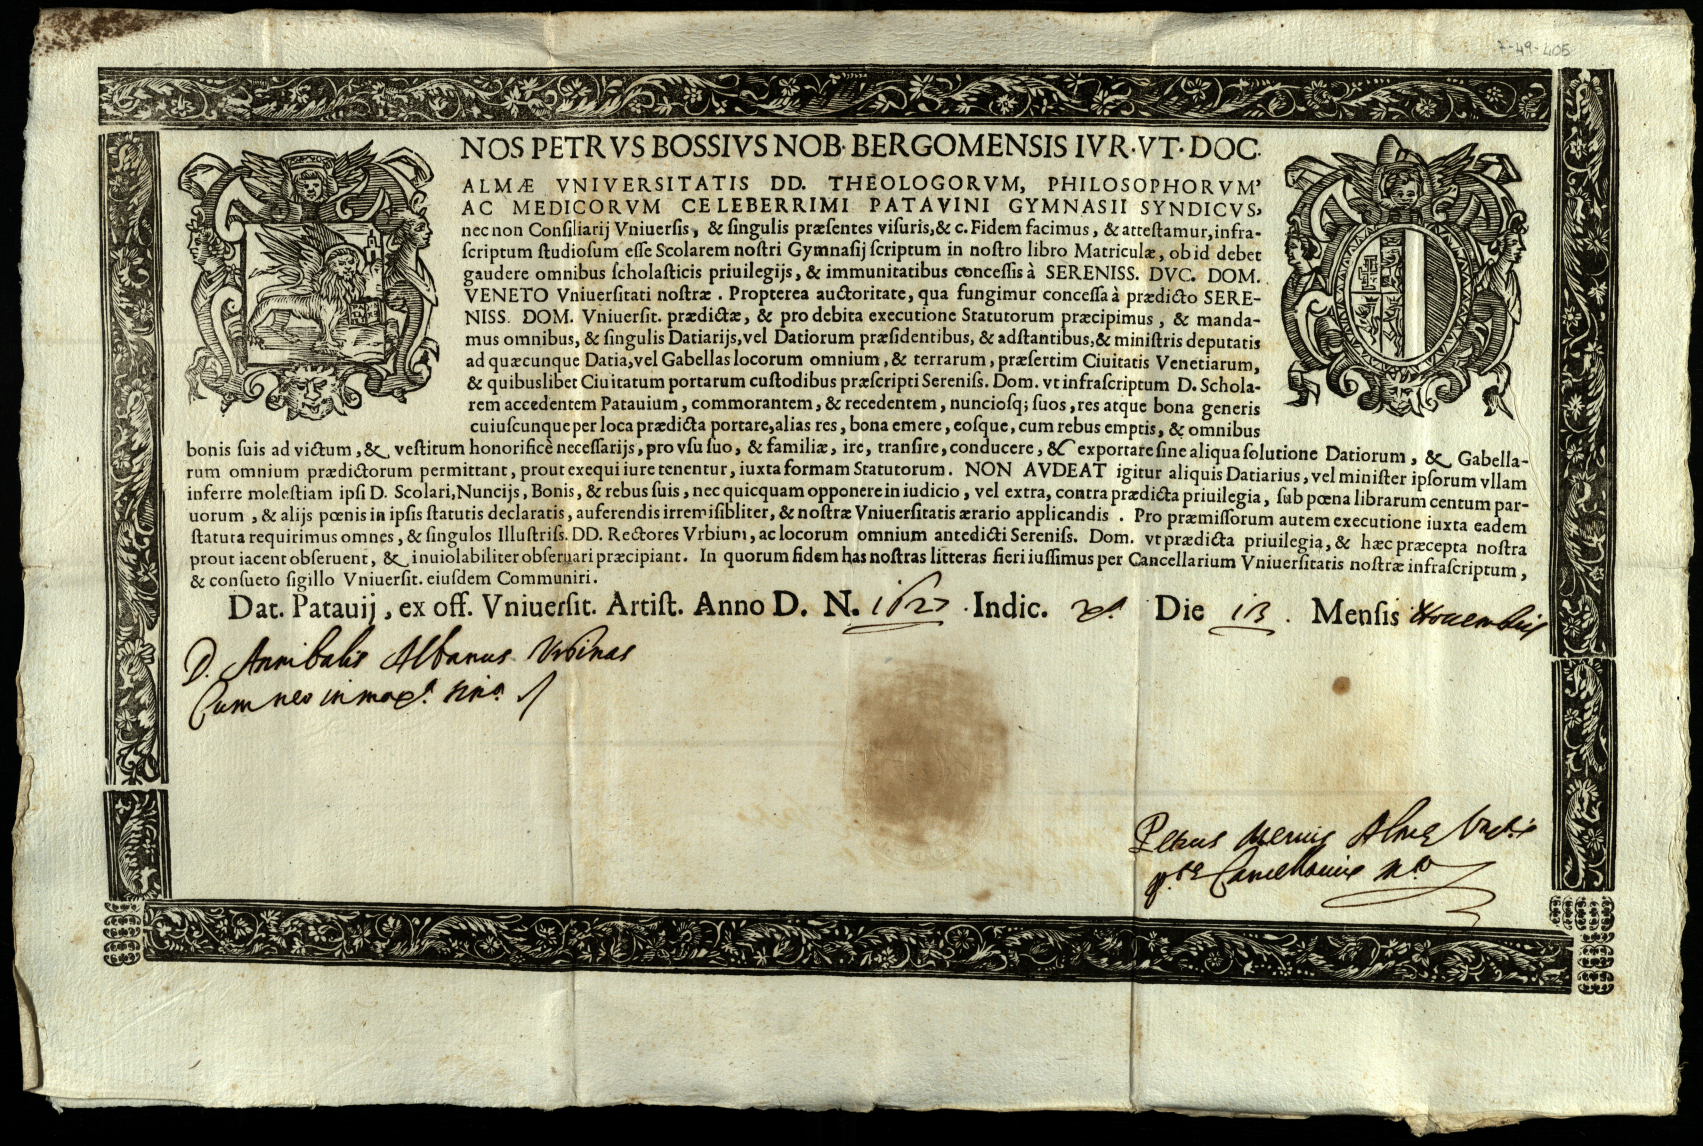 7-49-405
NOS PETRVS BOSSIVS NOB. BERGOMENSIS IVR. VT. DOC.
ALMÆ VNIVERSITATIS DD. THEOLOGORVM, PHILOSOPHORVM,
AC MEDICORVM CELEBERRIMI PATAVINI GYMNASII SYNDICVS,
nec non Consiliarij Vniuersis, & singulis præsentes visuris, & c. Fidem facimus, & attestamur, infra-
scriptum studiosum esse Scolarem nostri Gymnasij scriptum in nostro libro Matriculæ, ob id debet
gaudere omnibus scholasticis priuilegijs, & immunitatibus concessis à SERENISS. DVC. DOM.
VENETO Vniuersitati nostræ. Propterea auctoritate, qua fungimur concessa à prædicto SERE-
NISS. DOM. Vniuersit. prædictæ, & pro debita executione Statutorum præcipimus, & manda-
mus omnibus, & singulis Datiarijs, vel Datiorum præsidentibus, & adstantibus, & ministris deputatis
ad quæcunque Datia, vel Gabellas locorum omnium, & terrarum, præsertim Ciuitatis Venetiarum,
& quibuslibet Ciuitatum portarum custodibus præscripti Sereniss. Dom. vt infrascriptum D. Schola-
rem accedentem Patauium, commorantem, & recedentem, nunciosq; suos, res atque bona generis
cuiuscunque per loca prædicta portare, alias res, bona emere, eosque, cum rebus emptis, & omnibus
bonis suis ad victum, & vestitum honorificè necessarijs, pro vsu suo, & familiæ, ire, transire, conducere, & exportare sine aliqua solutione Datiorum, & Gabella-
rum omnium prædictorum permittant, prout exequi iure tenentur, iuxta formam Statutorum. NON AVDEAT igitur aliquis Datiarius, vel minister ipsorum vllam
inferre molestiam ipsi D. Scolari, Nuncijs, Bonis, & rebus suis, nec quicquam opponere in iudicio, vel extra, contra prædicta priuilegia, sub pœna librarum centum par-
uorum, & alijs pœnis in ipsis statutis declaratis, auferendis irremisibliter, & nostræ Vniuersitatis ærario applicandis. Pro præmissorum autem executione iuxta eadem
statuta requirimus omnes, & singulos Illustriss. DD. Rectores Vrbium, ac locorum omnium antedicti Sereniss. Dom. vt prædicta priuilegia, & hæc præcepta nostra
prout iacent obseruent, & inuiolabiliter obseruari præcipiant. In quorum fidem has nostras litteras fieri iussimus per Cancellarium Vniuersitatis nostræ infrascriptum,
& consueto sigillo Vniuersit. eiusdem Communiri.
Dat. Patauij, ex off. Vniuersit. Artist. Anno D. N. 1627 Indic. Die 13. Mensis Nouembris
D. Annibalis Albanus Vrbinas
Cum neo in
Petrus Almę
Cancellarius